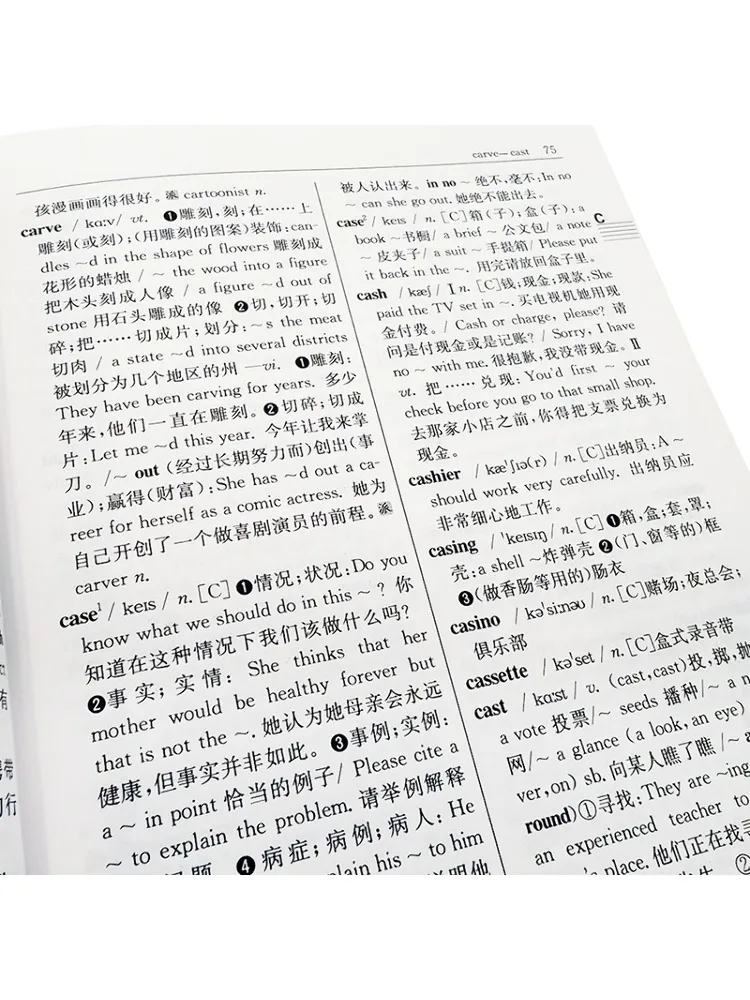 carve—cast 75
孩漫画画得很好。派 cartoonist n.
carve / kɑːv/ vt. ❶雕刻,刻;在……上
雕刻(或刻);(用雕刻的图案)装饰:can-
dles ~d in the shape of flowers 雕刻成
花形的蜡烛 / ~ the wood into a figure
把木头刻成人像 / a figure ~d out of
stone 用石头雕成的像 ❷切,切开;切
碎;把……切成片;划分:~s the meat
切肉 / a state ~d into several districts
被划分为几个地区的州 —vi. ❶雕刻:
They have been carving for years. 多少
年来,他们一直在雕刻。❷切碎;切成
片:Let me ~d this year. 今年让我来掌
刀。/~ out (经过长期努力而)创出(事
业);赢得(财富):She has ~d out a ca-
reer for herself as a comic actress. 她为
自己开创了一个做喜剧演员的前程。派
carver n.
case¹ / keɪs / n. [C] ❶情况;状况:Do you
know what we should do in this ~ ? 你
知道在这种情况下我们该做什么吗?
❷事实;实情: She thinks that her
mother would be healthy forever but
that is not the ~. 她认为她母亲会永远
健康,但事实并非如此。❸事例;实例:
a ~ in point 恰当的例子/ Please cite a
~ to explain the problem. 请举例解释
❹病症;病例;病人: He
plain his ~ to him
被人认出来。in no ~ 绝不,毫不:In no
~ can she go out. 她绝不能出去。
case² / keɪs / n. [C]箱(子);盒(子):a
book ~书橱/ a brief ~ 公文包/ a note
~ 皮夹子/ a suit ~ 手提箱/ Please put
it back in the ~. 用完请放回盒子里。
C
cash / kæʃ / Ⅰ n. [C]钱;现金;现款:She
paid the TV set in ~. 买电视机她用现
金付费。/ Cash or charge, please? 请
问是付现金或是记账? / Sorry, I have
no ~ with me. 很抱歉,我没带现金。Ⅱ
vt. 把……兑现: You'd first ~ your
check before you go to that small shop.
去那家小店之前,你得把支票兑换为
现金。
cashier / kæˈʃɪə(r) / n. [C]出纳员:A ~
should work very carefully. 出纳员应
非常细心地工作。
casing / ˈkeɪsɪŋ / n. [C] ❶箱,盒;套,罩;
壳:a shell ~炸弹壳 ❷(门、窗等的)框
❸(做香肠等用的)肠衣
casino / kəˈsiːnəʊ / n. [C]赌场;夜总会;
俱乐部
cassette / kəˈset / n. [C]盒式录音带
cast / kɑːst / v. (cast,cast)投,掷,抛
a vote 投票/~ seeds 播种/~ a n
网/~ a glance (a look, an eye)
ver,on) sb. 向某人瞧了瞧 /~ a
round)①寻找:They are ~ing
an experienced teacher to
's place. 他们正在找寻